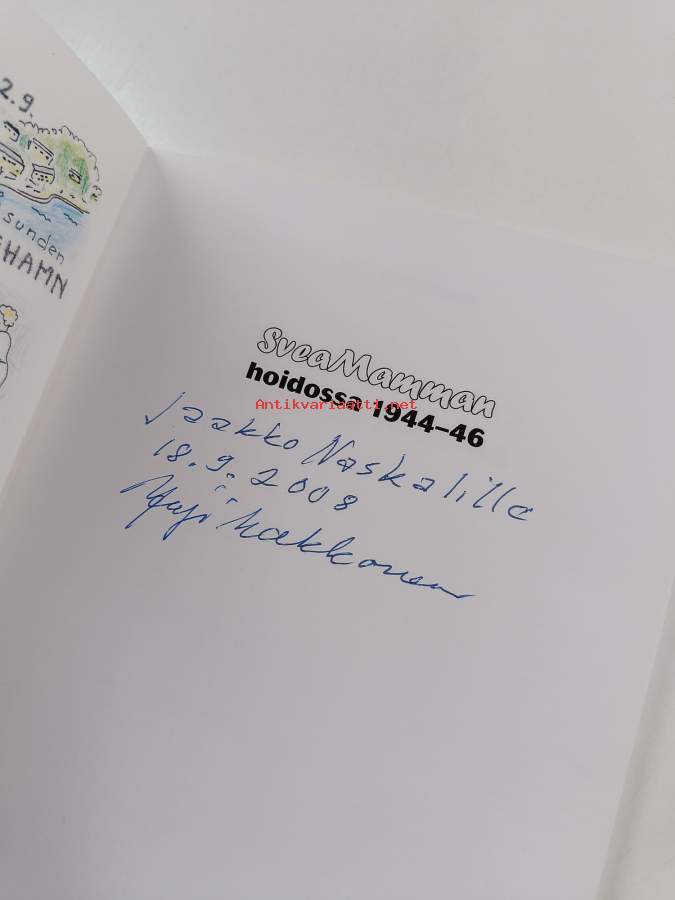 2.9.
sunden
HAMN
SveaMamman
hoidossa 1944–46
Antikvariaatti.net
Jaakko Naskalille
18.9.2008
Makkonen